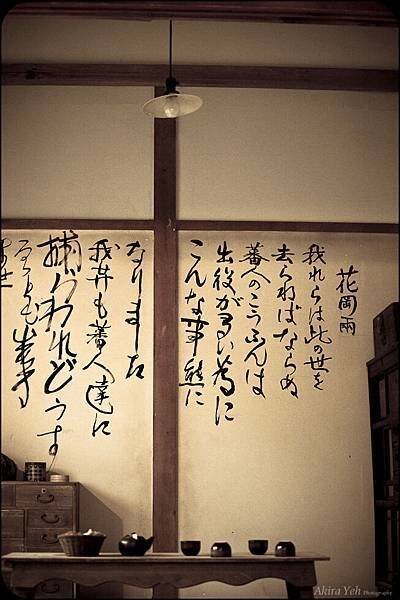 花岡両
我れらは此の世を
去らねばならぬ
蕃人のこうふんは
出役が多い為に
こんな事件に
なりました
我等も蕃人達に
捕われどうす
Akira Yeh Photography